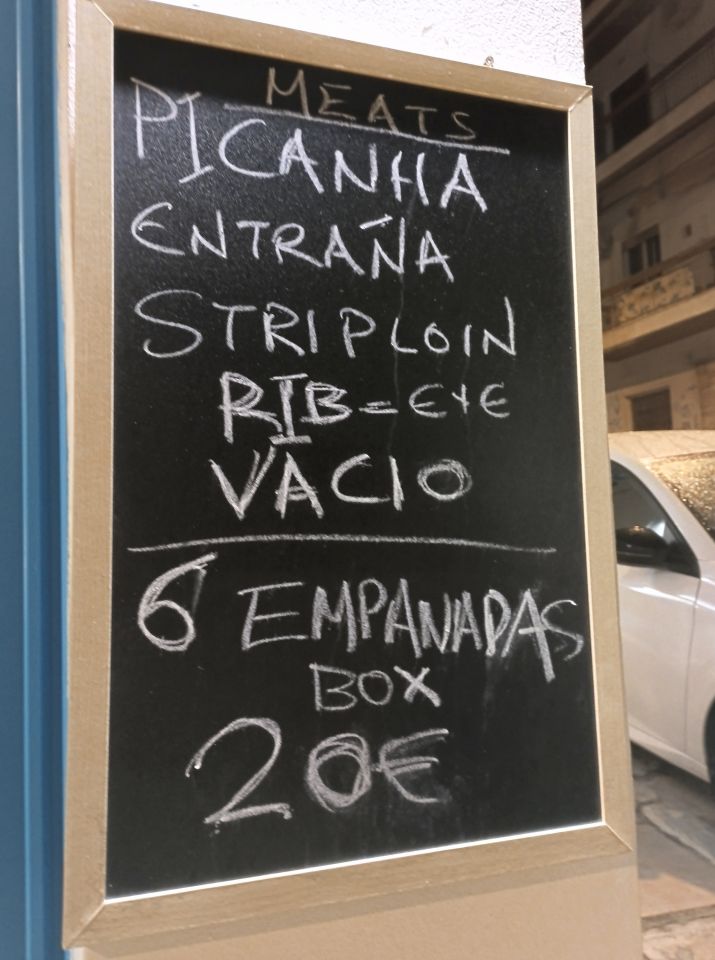 MEATS
PICANHA
ENTRAÑA
STRIPLOIN
RIB=EYE
VACIO
6 EMPANADAS
BOX
20€